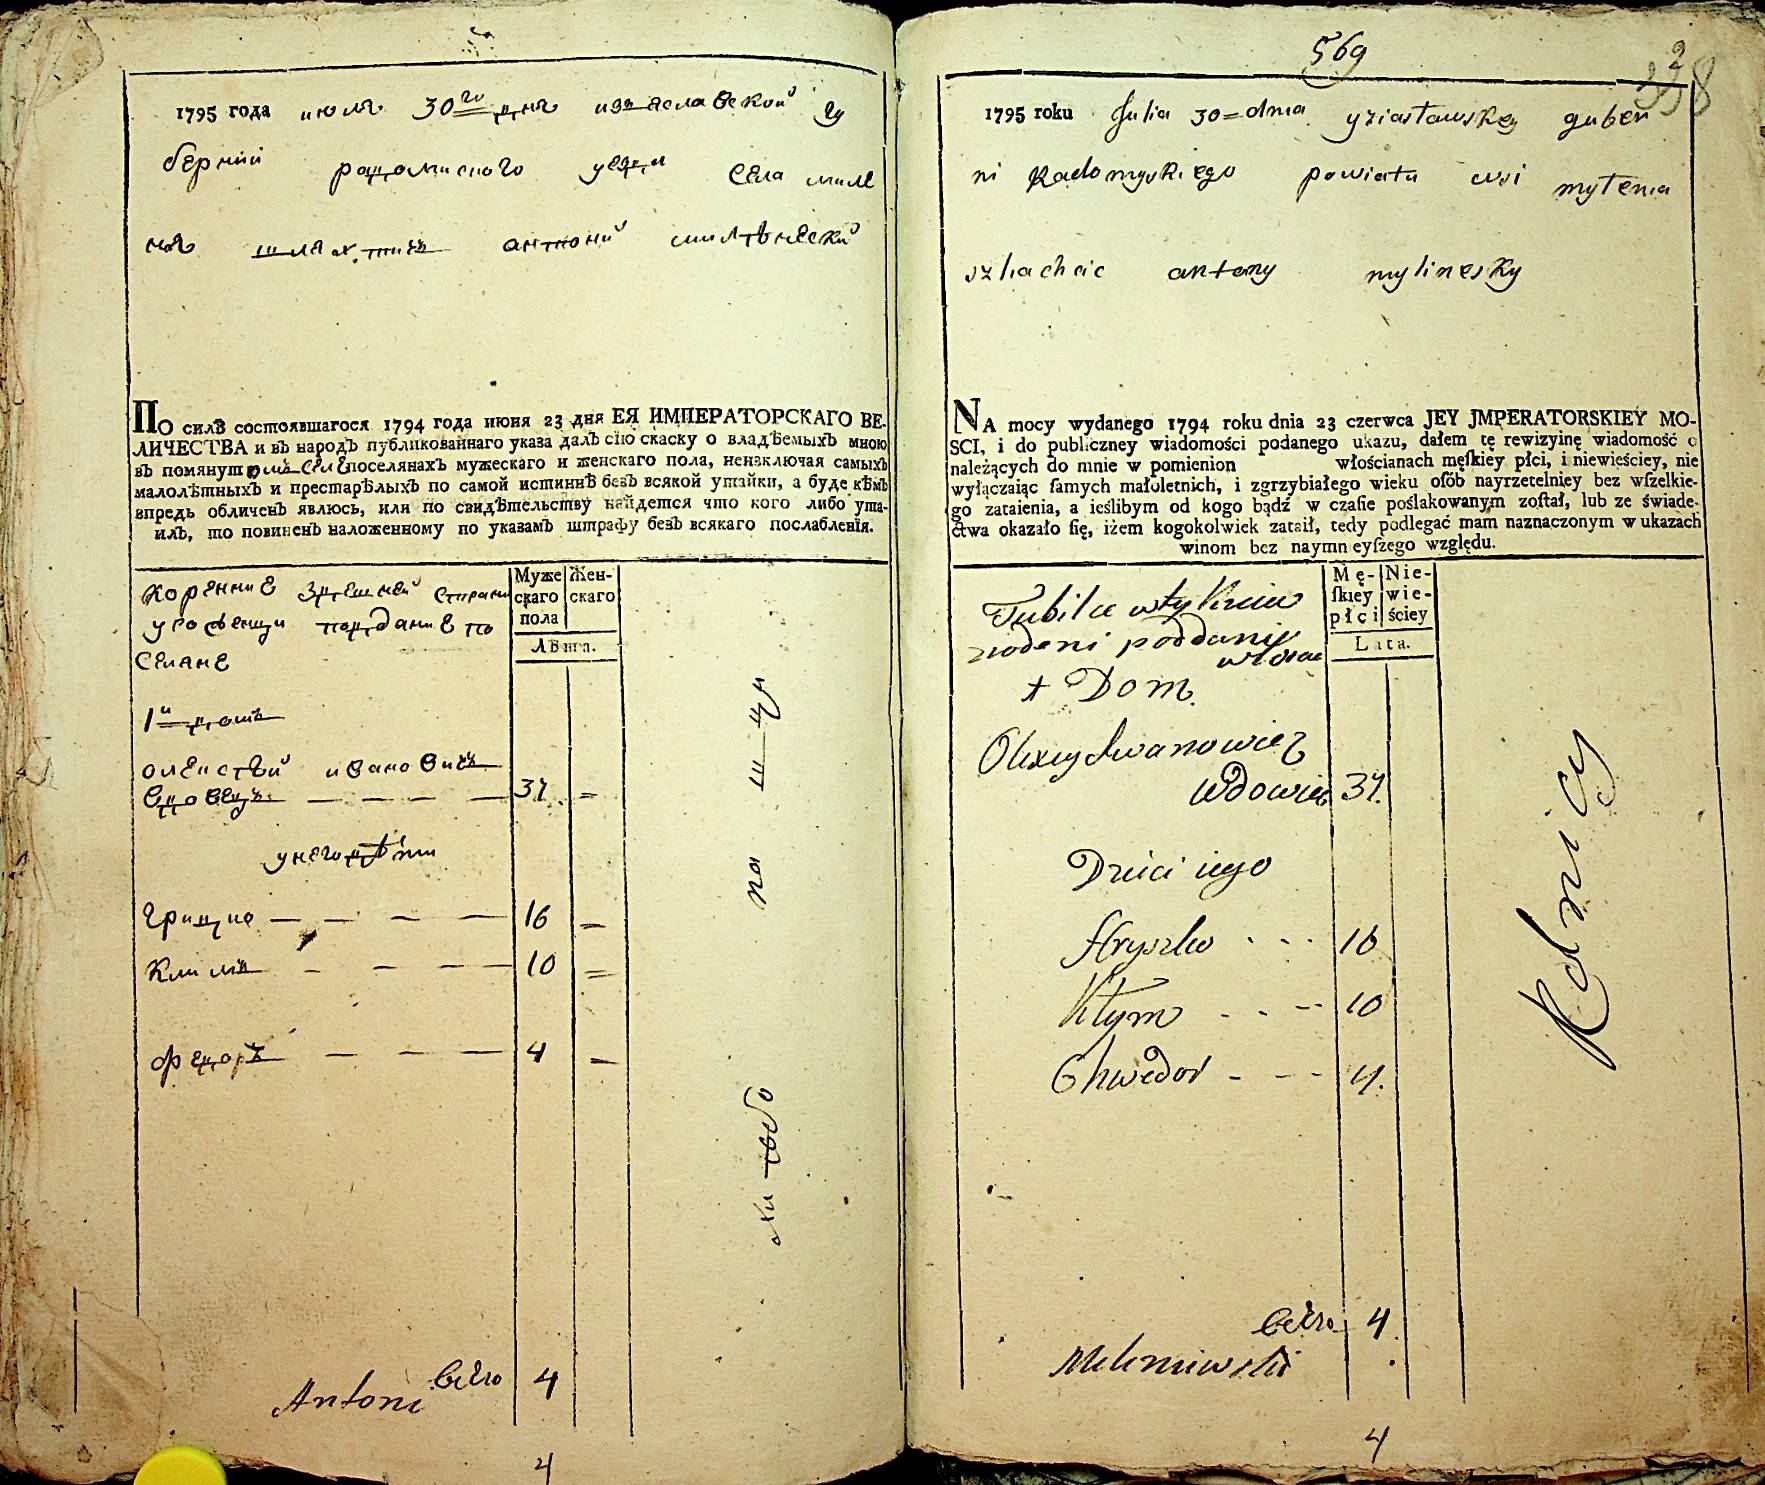 1795 года июля 30го дня изяславской гу
берний радомиского уезда села миле
ня шляхтичъ антоний милѣнеский
ПО силѣ состоявшагося 1794 года июня 23 дня ЕЯ ИМПЕРАТОРСКАГО ВЕ-
ЛИЧЕСТВА и въ народъ публикованнаго указа далъ сію скаску о владѣемыхъ мною
въ помянутомъ селе поселянахъ мужескаго и женскаго пола, неизключая самыхъ
малолѣтныхъ и престарѣлыхъ по самой истиннѣ безъ всякой утайки, а буде кѣмъ
впредь обличенъ явлюсь, или по свидѣтельству найдется что кого либо ута-
илъ, то повиненъ наложенному по указамъ штрафу безъ всякаго послабленїя.
Муже
скаго
пола
Жен-
скаго
Лѣта.
коренние здешней страни
подание по
селяне
1й домъ
олексѣй ивановичъ
вдовецъ — — — — 37. =
унего дѣти
грицко — — — — 16 =
климъ — — — — 10 =
федоръ — — — 4 =
Всего 4
Antoni
4
569
1795 roku Julia 30 = dnia yziasławskey guber
ni Radomyskiego powiatu wsi mylenia
szliachcic antony mylinesky
NA mocy wydanego 1794 roku dnia 23 czerwca JEY JMPERATORSKIEY MO-
SCI, i do publiczney wiadomości podanego ukazu, dałem tę rewizyinę wiadomość o
należących do mnie w pomienion włościanach męſkiey płci, i niewieściey, nie
wyłączaiąc ſamych małoletnich, i zgrzybiałego wieku oſób nayrzetelniey bez wſzelkie-
go zataienia, a ieślibym od kogo bądź w czaſie poślakowanym zoſtał, lub ze świade-
ctwa okazało ſię, iżem kogokolwiek zataił, tedy podlegać mam naznaczonym w ukazach
winom bez naymnieyſzego względu.
Mę-
ſkiey
płci
Nie-
wie-
ściey
Lata.
poddanij
Dom
Olexey Iwanowicz
Wdowiec 37.
Dzieci iego
Hryszko - - - 16
Kłym - - - 10
Chwedor - - - 4.
Всего 4
Meleniewski
4